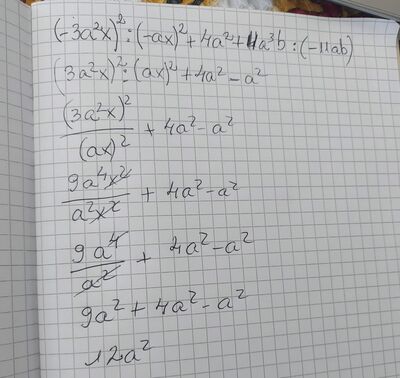 (-3a²x)² : (-ax)² + 4a² + 11a³b : (-11ab)
(3a²x)² : (ax)² + 4a² - a²
(3a²x)² / (ax)² + 4a² - a²
9a⁴x² / a²x² + 4a² - a²
9a⁴ / a² + 4a² - a²
9a² + 4a² - a²
12a²